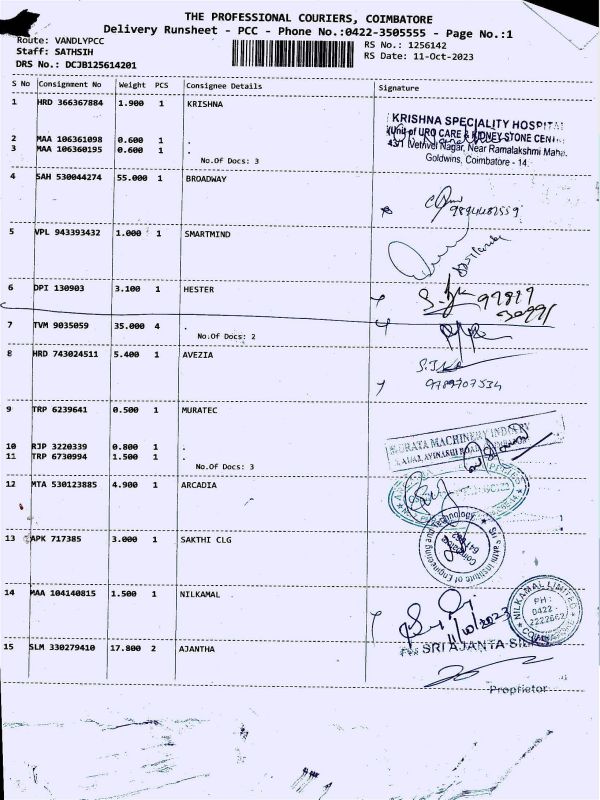 THE PROFESSIONAL COURIERS, COIMBATORE
Delivery Runsheet - PCC - Phone No.:0422-3505555 - Page No.:1
Route: VANDLYPCC
RS No.: 1256142
Staff: SATHSIH
RS Date: 11-Oct-2023
DRS No.: DCJB125614201
S No Consignment No Weight PCS Consignee Details Signature
1 HRD 366367884 1.900 1 KRISHNA
KRISHNA SPECIALITY HOSPITAL
(Unit of URO CARE & KIDNEY STONE CENTRE
2 MAA 106361098 0.600 1 .
3 MAA 106360195 0.600 1 .
43/1 Vetrivel Nagar, Near Ramalakshmi Maha.
Goldwins, Coimbatore - 14.
No.Of Docs: 3
4 SAH 530044274 55.000 1 BROADWAY
9894482559
5 VPL 943393432 1.000 1 SMARTMIND
6 DPI 130903 3.100 1 HESTER
97819
30991
7 TVM 9035059 35.000 4 .
No.Of Docs: 2
8 HRD 743024511 5.400 1 AVEZIA
9789707534
9 TRP 6239641 0.500 1 MURATEC
MURATA MACHINERY INDIA
AVINASHI ROAD
10 RJP 3220339 0.800 1 .
11 TRP 6730994 1.500 1 .
No.Of Docs: 3
12 MTA 530123885 4.900 1 ARCADIA
13 APK 717385 3.000 1 SAKTHI CLG
Sri Sakthi Institute of Engineering and Technology
Coimbatore
641 062
14 MAA 104140815 1.500 1 NILKAMAL
11/10/2023
NILKAMAL LIMITED
PH :
0422 -
2222662
COIMBATORE
15 SLM 330279410 17.800 2 AJANTHA
For SRI AJANTA SILKS
Proprietor